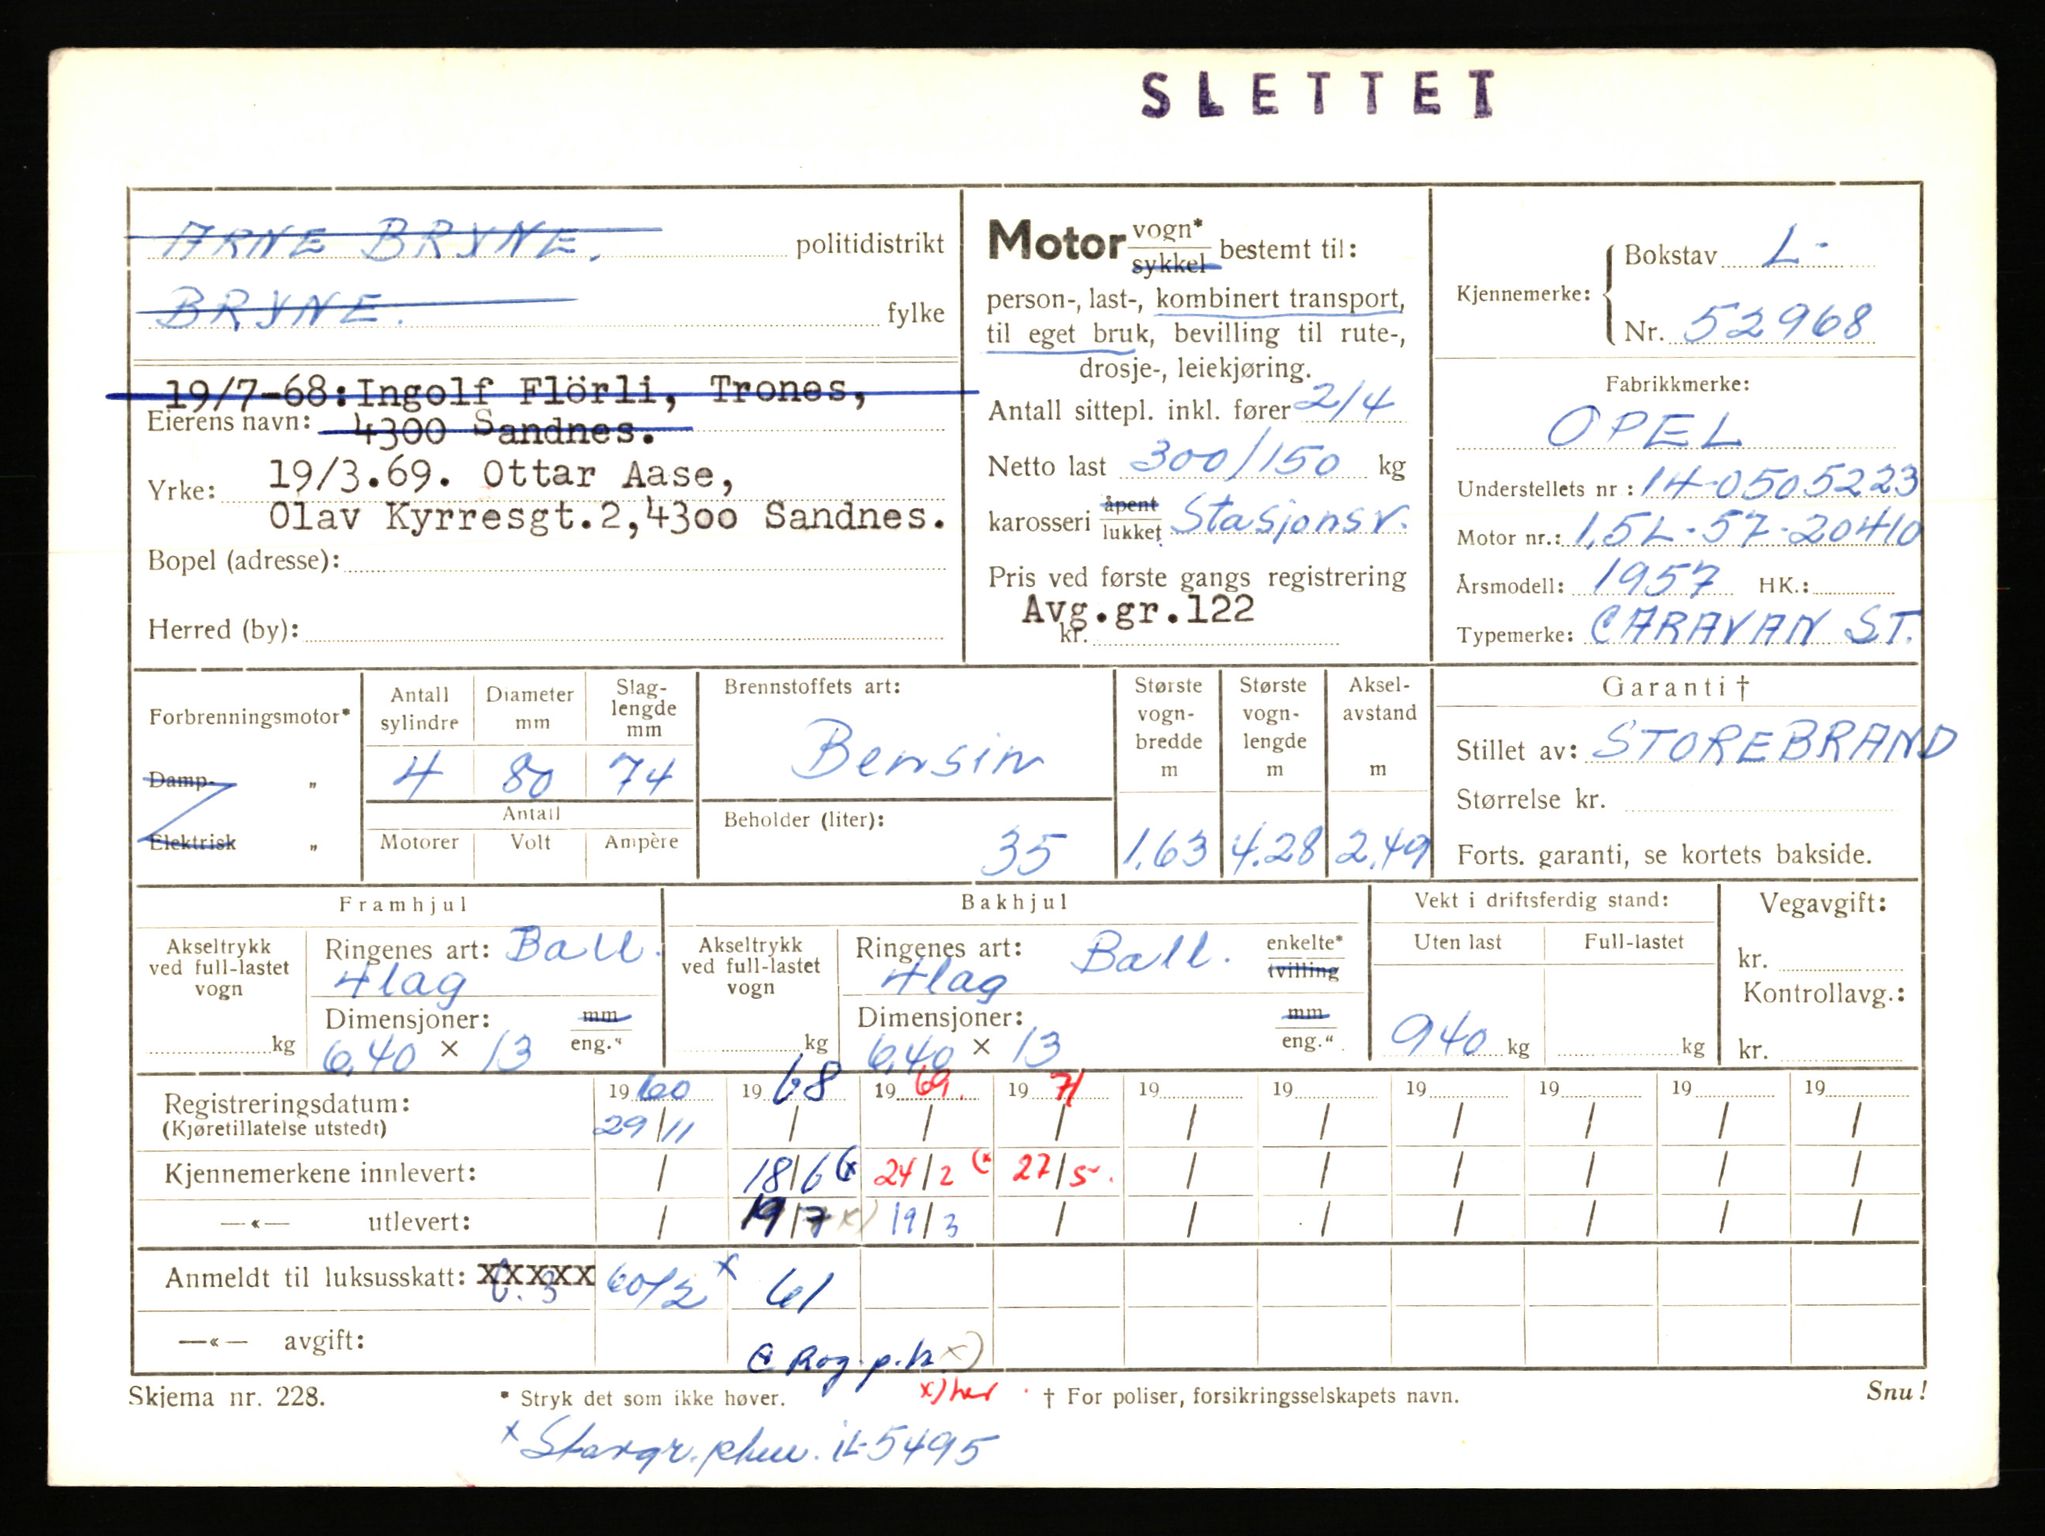 SLETTET
ARNE BRYNE. politidistrikt
BRYNE. fylke
19/7-68: Ingolf Flörli, Trones,
Eierens navn: 4300 Sandnes.
19/3.69. Ottar Aase,
Yrke:
Olav Kyrresgt.2,43oo Sandnes.
Bopel (adresse):
Herred (by):
Motor vogn* sykkel bestemt til:
person-, last-, kombinert transport,
til eget bruk, bevilling til rute-,
drosje-, leiekjøring.
Antall sittepl. inkl. fører 2/4
Netto last 300/150 kg
karosseri åpent lukket Stasjonsv.
Pris ved første gangs registrering
Avg.gr.122
kr.
Kjennemerke: Bokstav L-
Nr. 52968
Fabrikkmerke:
OPEL
Understellets nr: 14-0505223
Motor nr.: 1,5L-57-20410
Årsmodell: 1957 HK.:
Typemerke: CARAVAN ST.
Forbrenningsmotor*
Damp- "
Elektrisk "
Antall sylindre
Diameter mm
Slag-lengde mm
4 80 74
Antall
Motorer Volt Ampère
Brennstoffets art:
Bensin
Beholder (liter):
35
Største vogn-bredde m
1.63
Største vogn-lengde m
4.28
Aksel-avstand m
2.49
Garanti †
Stillet av: STOREBRAND
Størrelse kr.
Forts. garanti, se kortets bakside.
Framhjul
Akseltrykk ved full-lastet vogn
kg
Ringenes art: Ball.
4lag
Dimensjoner: mm
6.40 × 13 eng."
Bakhjul
Akseltrykk ved full-lastet vogn
kg
Ringenes art: Ball. enkelte* tvilling
4lag
Dimensjoner: mm
6.40 × 13 eng."
Vekt i driftsferdig stand:
Uten last Full-lastet
940 kg kg
Vegavgift:
kr.
Kontrollavg.:
kr.
1960 1968 1969. 1971 19 19 19 19 19 19
Registreringsdatum:
(Kjøretillatelse utstedt) 29/11 / / / / / / / / /
Kjennemerkene innlevert: / 18/6 (x 24/2 (x 27/5. / / / / / /
—«— utlevert: / 19/7 x) 19/3 / / / / / / /
Anmeldt til luksusskatt: XXXXX 60/2 x 61
—«— avgift:
Rog.p.k x)
x) her
Skjema nr. 228. * Stryk det som ikke høver. † For poliser, forsikringsselskapets navn. Snu!
5495